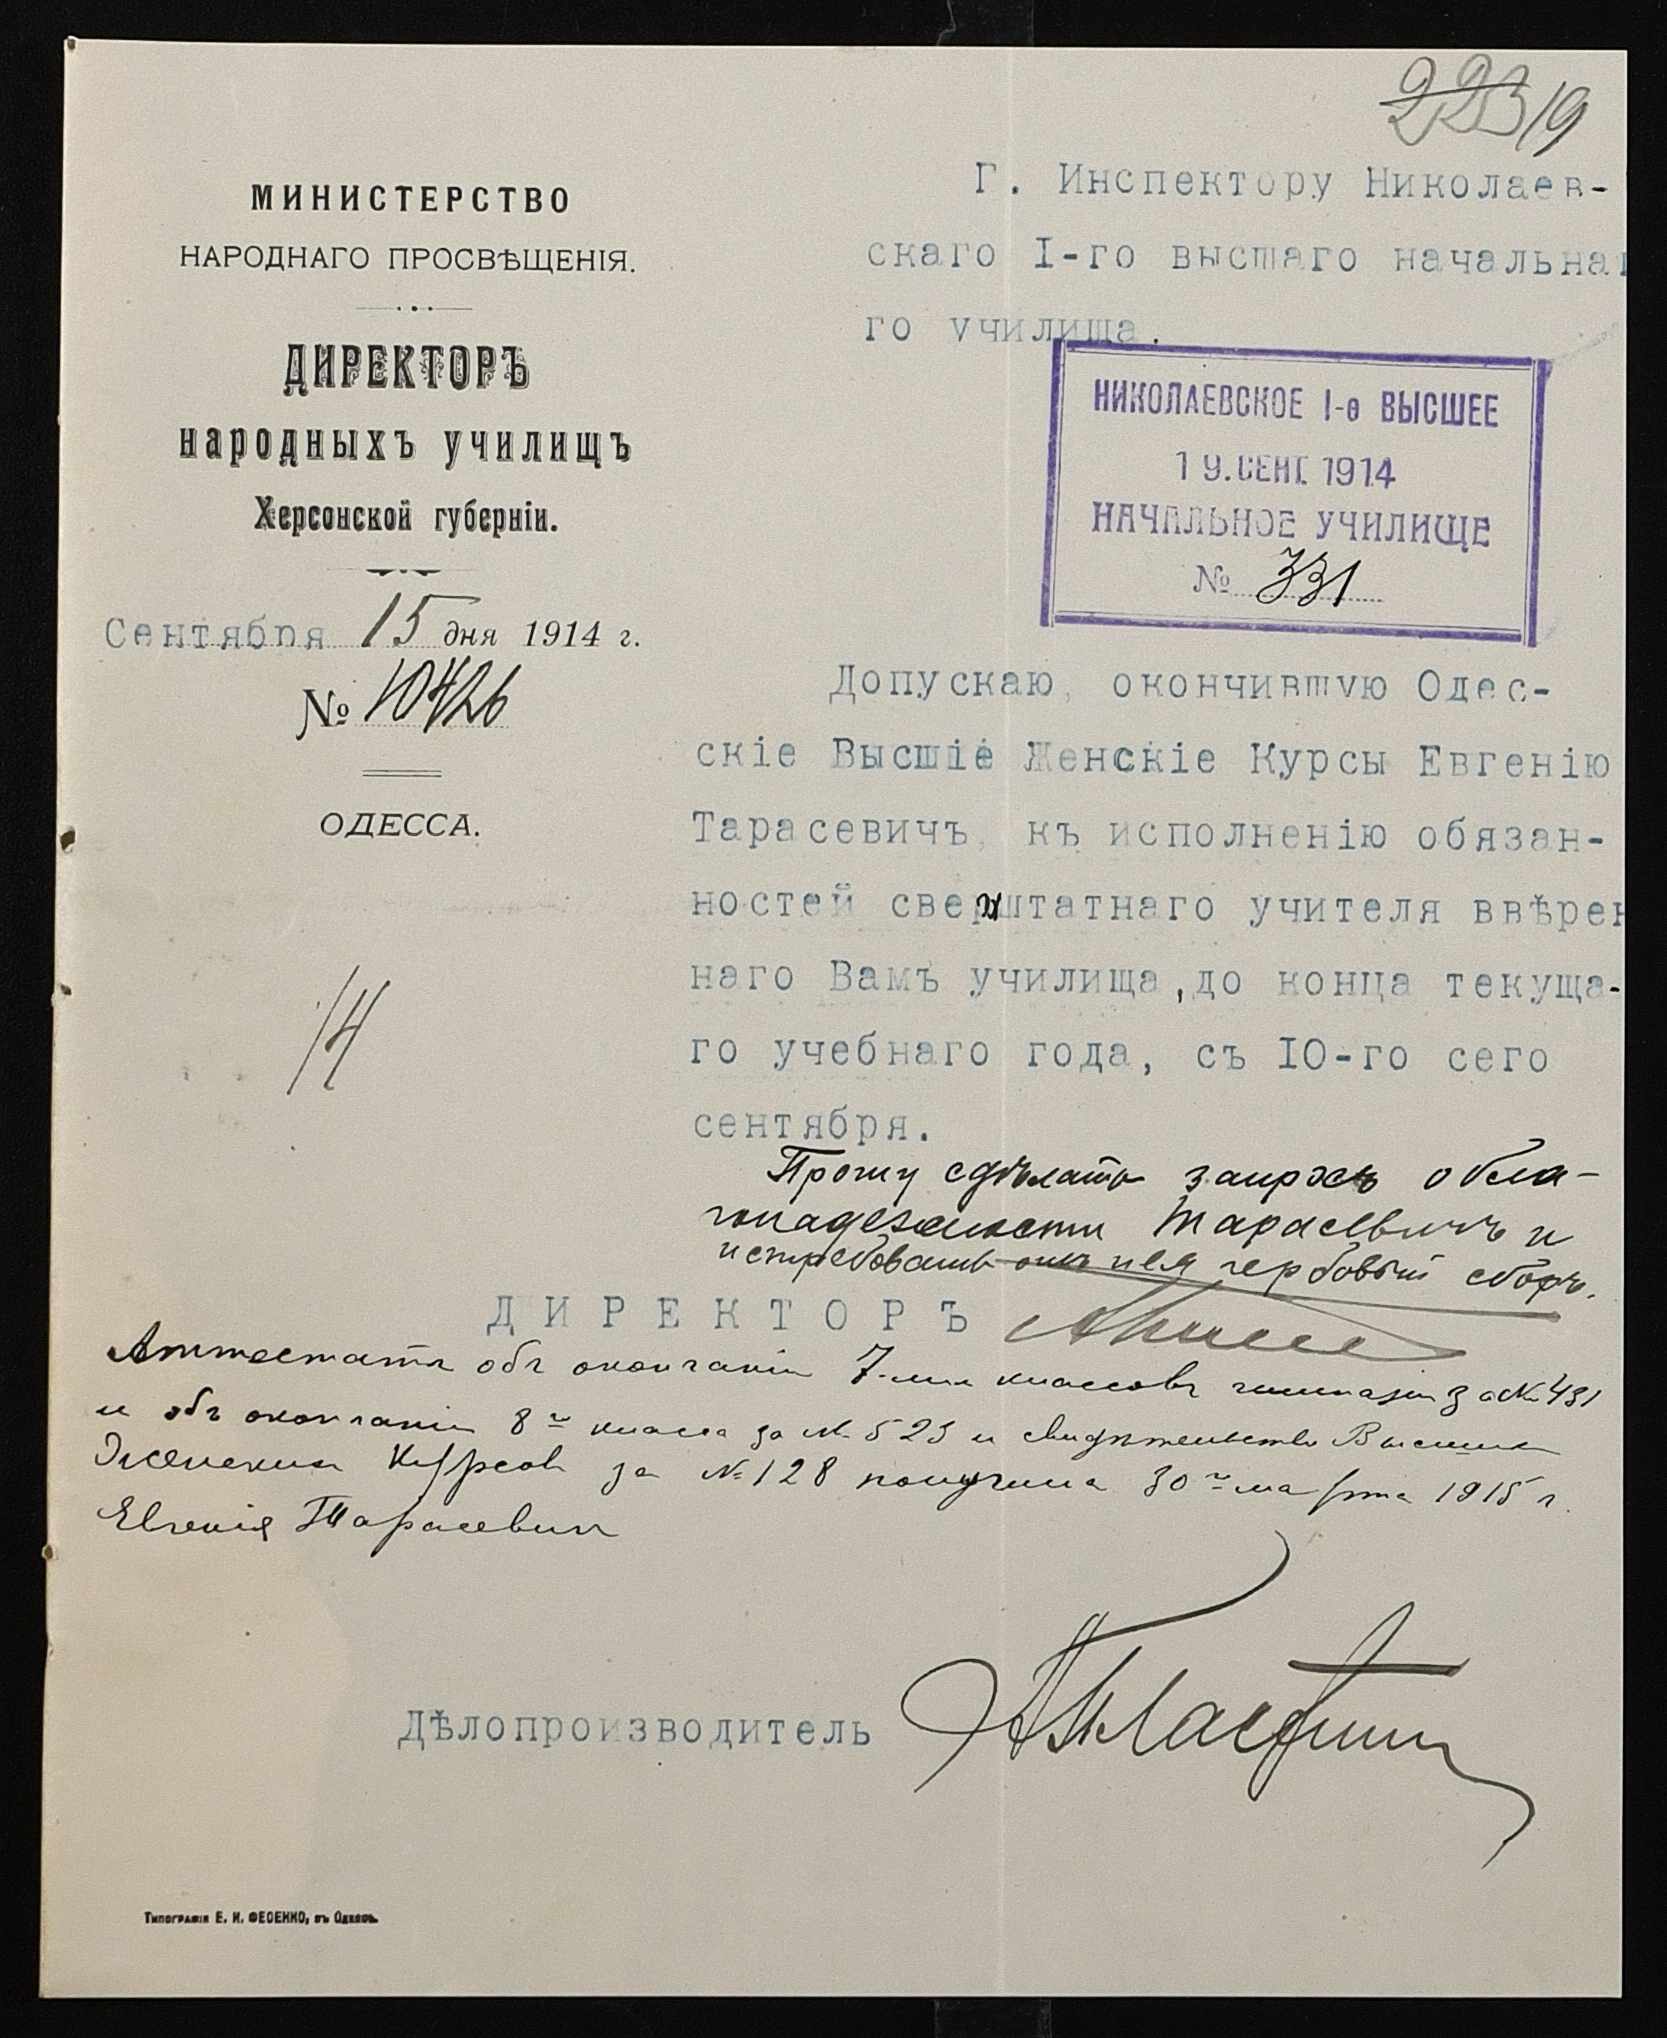 223 19
МИНИСТЕРСТВО
НАРОДНАГО ПРОСВѢЩЕНІЯ.
ДИРЕКТОРЪ
народныхъ училищъ
Херсонской губерніи.
Сентября 15 дня 1914 г.
№ 10426
ОДЕССА.
14
Г. Инспектору Николаев-
скаго I-го высшаго начальна
го училища.
НИКОЛАЕВСКОЕ I-е ВЫСШЕЕ
19. СЕНТ. 1914
НАЧАЛЬНОЕ УЧИЛИЩЕ
№ 331
Допускаю, окончившую Одес-
скіе Высшіе Женскіе Курсы Евгенію
Тарасевичъ, къ исполненію обязан-
ностей сверхштатнаго учителя ввѣрен
наго Вамъ училища, до конца текуща-
го учебнаго года, съ IO-го сего
сентября.
Прошу сдѣлать запросъ о бла-
гонадежности Тарасевичъ и
истребовать отъ нея гербовый сборъ.
ДИРЕКТОРЪ
Аттестатъ объ окончаніи 7-ми классовъ гимназіи за № 431
и объ окончаніи 8го класса за № 523 и свидѣтельство Высшихъ
Женскихъ Курсовъ за № 128 получила 30го марта 1915 г.
Евгенія Тарасевич
Дѣлопроизводитель
Типографія Е. И. ФЕСЕНКО, въ Одессѣ.